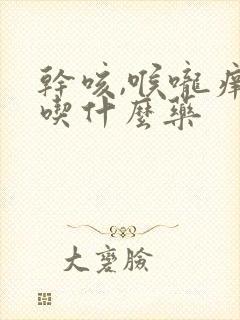 幹咳,喉嚨癢
喫什麼藥
大裦臉